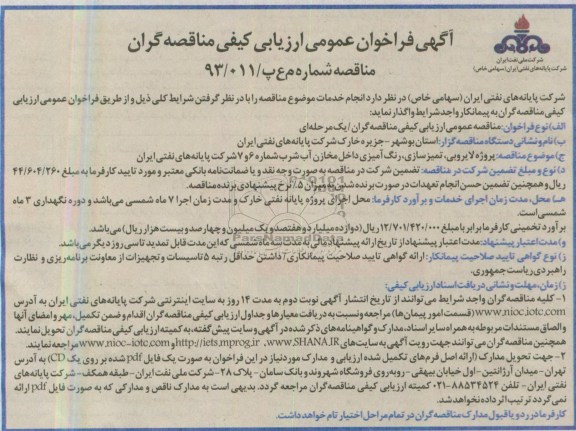 شرکت ملی نفت ایران
شرکت پایانه‌های نفتی ایران (سهامی خاص)
آگهی فراخوان عمومی ارزیابی کیفی مناقصه گران
مناقصه شماره م‌ع‌پ/۹۳/۰۱۱
شرکت پایانه‌های نفتی ایران (سهامی خاص) در نظر دارد انجام خدمات موضوع مناقصه را با در نظر گرفتن شرایط کلی ذیل و از طریق فراخوان عمومی ارزیابی
کیفی مناقصه گران به پیمانکار واجد شرایط واگذار نماید:
الف) نوع فراخوان: مناقصه عمومی ارزیابی کیفی مناقصه گران / یک مرحله‌ای
ب) نام و نشانی دستگاه مناقصه گزار: استان بوشهر - جزیره خارک شرکت پایانه‌های نفتی ایران
ج) موضوع مناقصه: پروژه لایروبی، تمیزسازی، رنگ آمیزی داخل مخازن آب شرب شماره ۶ و ۷ شرکت پایانه های نفتی ایران
د) نوع و مبلغ تضمین شرکت در مناقصه: تضمین شرکت در مناقصه به صورت وجه نقد و یا ضمانت‌نامه بانکی معتبر و مورد تایید کارفرما به مبلغ ۴۴/۶۰۴/۲۶۰
ریال و همچنین تضمین حسن انجام تعهدات در صورت برنده شدن به میزان ۵٪ نرخ پیشنهادی برنده مناقصه.
هـ) محل، مدت زمان اجرای خدمات و برآورد کارفرما: محل اجرای پروژه پایانه نفتی خارک و مدت زمان اجرا ۷ ماه شمسی می‌باشد و دوره نگهداری ۳ ماه
شمسی است.
برآورد تخمینی کارفرما برابر با مبلغ ۱۲/۷۰۱/۴۲۰/۰۰۰ ریال (دوازده میلیارد و هفتصد و یک میلیون و چهارصد و بیست هزار ریال) می‌باشد.
و) مدت اعتبار پیشنهاد: مدت اعتبار پیشنهاد از تاریخ ارائه پیشنهاد مالی به مدت سه ماه شمسی که این مدت قابل تمدید تا سی روز دیگر می‌باشد.
ز) نوع گواهی تایید صلاحیت پیمانکار: ارائه گواهی تایید صلاحیت پیمانکاری / داشتن حداقل رتبه ۵ تاسیسات و تجهیزات از معاونت برنامه‌ریزی و نظارت
راهبردی ریاست جمهوری.
ژ) زمان، مهلت و نشانی دریافت اسناد ارزیابی کیفی:
۱- کلیه مناقصه گران واجد شرایط می توانند از تاریخ انتشار آگهی نوبت دوم به مدت ۱۴ روز به سایت اینترنتی شرکت پایانه های نفتی ایران به آدرس
www.nioc.iotc.com (قسمت امور پیمان‌ها) مراجعه و نسبت به دریافت معیارها و جداول ارزیابی کیفی مناقصه گران اقدام و ضمن تکمیل، مهر و امضای آنها
والصاق مستندات مربوطه به همراه سایر اسناد، مدارک و گواهینامه های ذکر شده در آگهی و سایت پیش گفته، به کمیته ارزیابی کیفی مناقصه گران تحویل نمایند.
همچنین مناقصه گران می توانند جهت رویت آگهی به سایت های http://iets.mprog.ir ،www.SHANA.IR و www.nioc-iotc.com مراجعه نمایند.
۲- جهت تحویل مدارک (ارائه اصل فرم‌های تکمیل شده ارزیابی و مدارک مورد نیاز در این فراخوان به صورت یک فایل pdf شده بر روی یک CD) به آدرس
تهران - میدان آرژانتین - اول خیابان بیهقی - روبه‌روی فروشگاه شهروند و بانک سامان - پلاک ۲۸ - شرکت ملی نفت ایران - طبقه همکف - شرکت پایانه های
نفتی ایران - تلفن ۸۸۵۳۴۵۲۴-۰۲۱ کمیته ارزیابی کیفی مناقصه گران مراجعه گردد. بدیهی است به مدارک ناقص و مدارکی که به صورت فایل pdf ارائه
نمی گردد ترتیب اثر داده نخواهد شد.
کارفرما در رد و یا قبول مدارک مناقصه گران در تمام مراحل اختیار تام خواهد داشت.